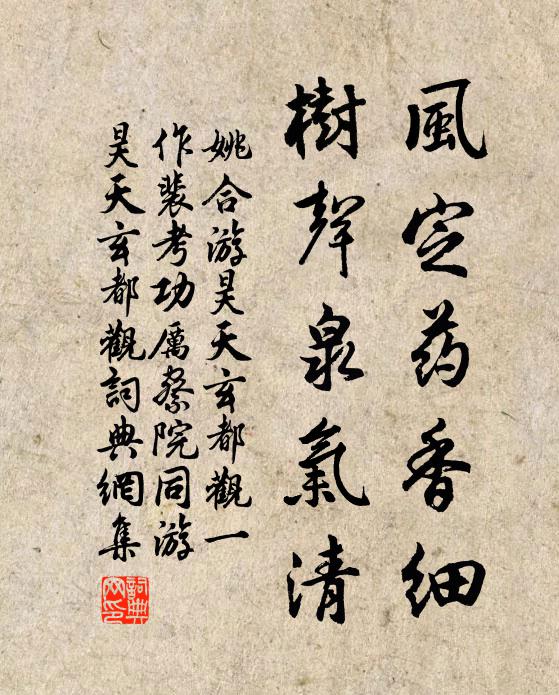 風定药香细
樹聲泉氣清
姚合游昊天玄都觀一
作裴考功厲察院同游
昊天玄都觀詞典網集
詞典
网印